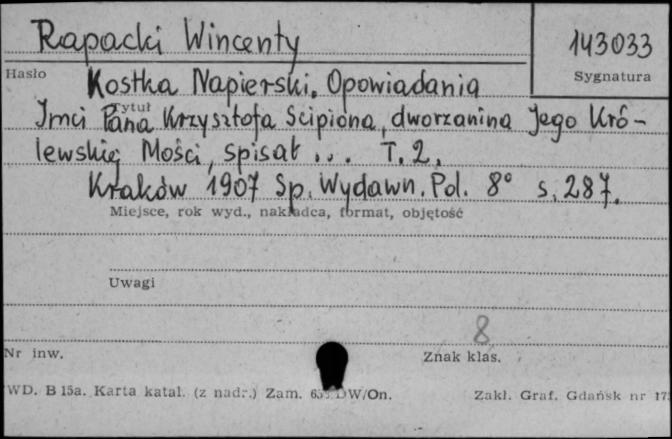 Rapacki Wincenty
143033
Hasło
Sygnatura
Kostka Napierski. Opowiadania
Tytuł
Jmci Pana Krzysztofa Scipiona, dworzanina Jego Kró-
lewskiej Mości, spisał ... T. 2.
Kraków 1907 Sp. Wydawn. Pol. 8° s. 287.
Miejsce, rok wyd., nakładca, format, objętość
Uwagi
8
Nr inw.
Znak klas.
WD. B 15a. Karta katal. (z nadr.) Zam. DW/On.
Zakł. Graf. Gdańsk nr